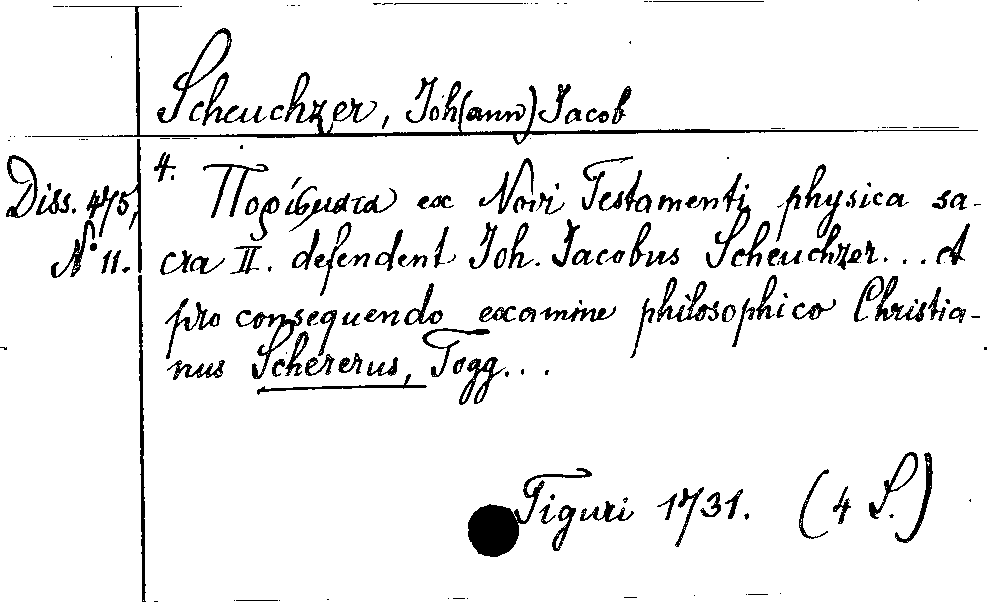 Scheuchzer, Joh(ann) Jacob
Diss. 475, 4. Πορίσματα ex Novi Testamenti physica sa-
N° 11. cra II. defendent Joh. Jacobus Scheuchzer... et
pro consequendo examine philosophico Christia-
nus Schererus, Togg...
Tiguri 1731. (4 S.)